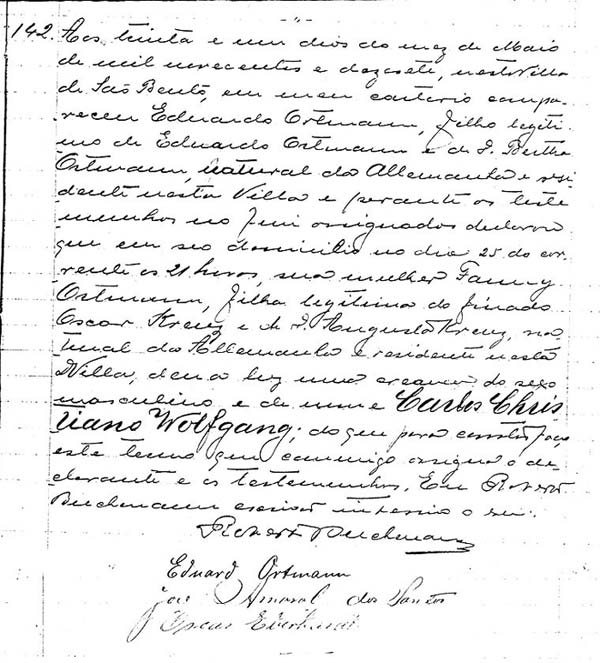 142. Aos trinta e um dias do mez de Maio
de mil novecentos e dezesete, nesta Villa
de São Bento, em meu cartorio compa-
receu Eduardo Ortmann, filho legiti-
mo de Eduardo Ortmann e de D. Bertha
Ortmann, natural da Allemanha e resi
dente nesta Villa e perante as teste
munhas no fim assignadas declarou
que em seo domicilio no dia 25 do cor-
rente as 21 horas, sua mulher Fanny
Ortmann, filha legitima do finado
Oscar Kreuz e de D. Augusta Kreuz, na
tural da Allemanha e residente nesta
Villa, deu a luz uma creança do sexo
masculino, e de nome Carlos Chris
tiano Wolfgang; do que para constar faço
este termo que commigo assigna o de
clarante e as testemunhas. Eu Robert
Buchmann escrivão interino o
Robert Buchmann
Eduard Ortmann
José Amaral dos Santos
Oscar